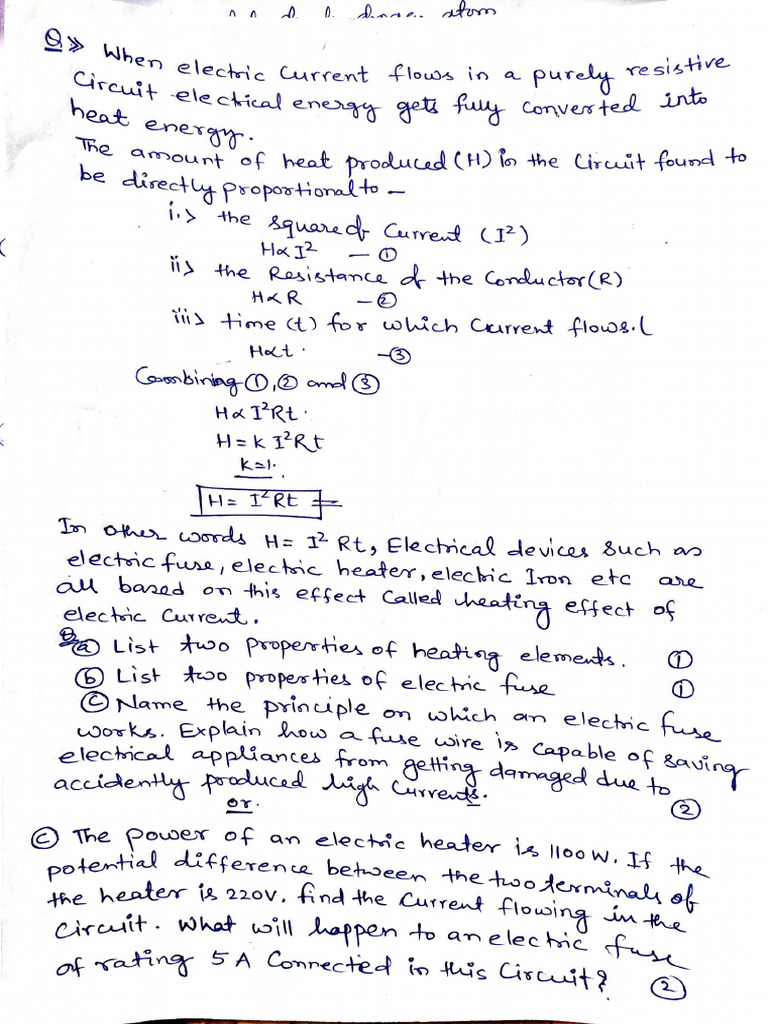 atom
Q>> When electric current flows in a purely resistive
Circuit electrical energy gets fully converted into
heat energy.
The amount of heat produced (H) in the Circuit found to
be directly proportional to —
i.> the square of Current (I²)
H∝I² — ①
ii> the Resistance of the Conductor (R)
H∝R — ②
iii> time (t) for which Current flows. (
H∝t. — ③
Combining ①, ② and ③
H∝ I²Rt.
H = K I²Rt
K=1.
H= I²Rt
In other words H= I² Rt, Electrical devices such as
electric fuse, electric heater, electric Iron etc are
all based on this effect called heating effect of
electric current.
Q ⓐ List two properties of heating elements. ①
ⓑ List two properties of electric fuse ①
ⓒ Name the principle on which an electric fuse
works. Explain how a fuse wire is capable of saving
electrical appliances from getting damaged due to
accidently produced high currents. ②
or.
ⓒ The power of an electric heater is 1100 W. If the
potential difference between the two terminals of
the heater is 220V. find the current flowing in the
Circuit. What will happen to an electric fuse
of rating 5 A Connected in this Circuit? ②